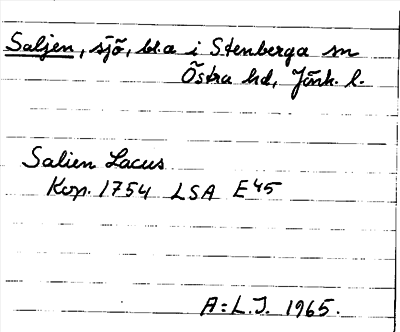 Saljen, sjö, bl.a i Stenberga sn
Östra hd, Jönk. l.
Salien Lacus
Kop. 1754 LSA E45
A:L.J. 1965.